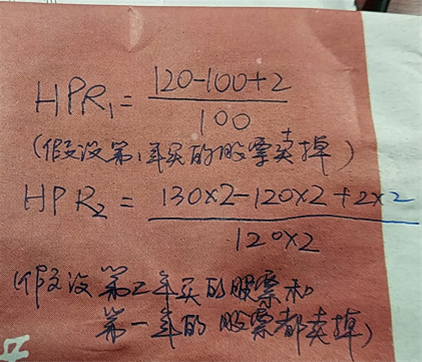 HPR₁ = (120-100+2)/100
(假设第1年买的股票卖掉)
HPR₂ = (130×2-120×2+2×2)/(120×2)
(假设第二年买的股票和
第一年的股票都卖掉)